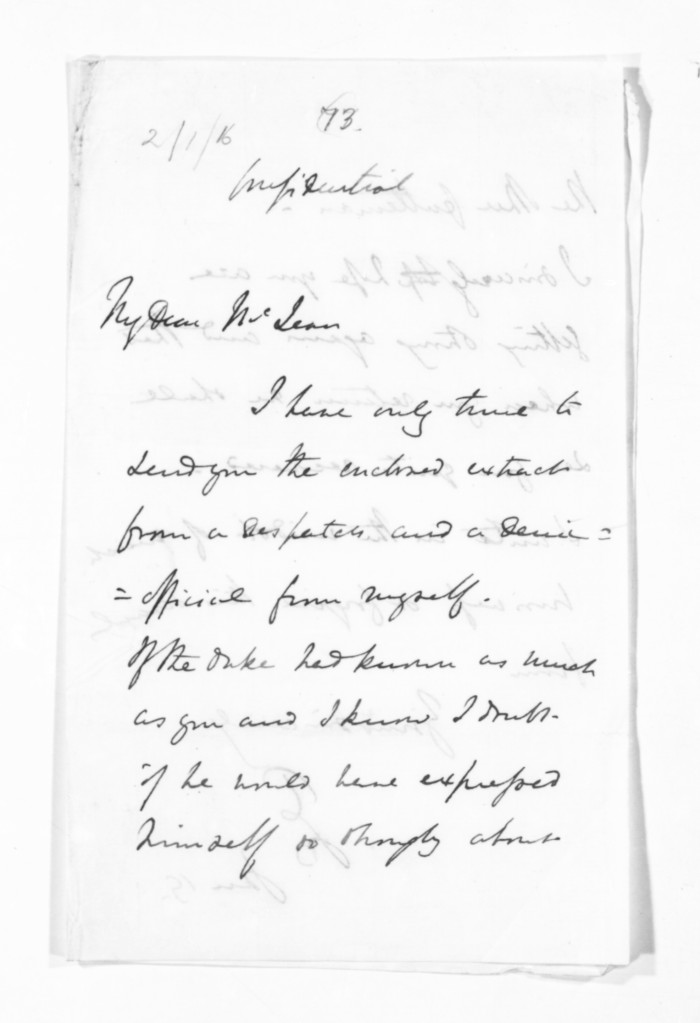 93.
2/1/16
Confidential
My Dear McLean
I have only time to
send you the enclosed extract
from a despatch and a demi=
=official from myself.
If the Duke had known as much
as you and I know I doubt
if he would have expressed
himself so strongly about